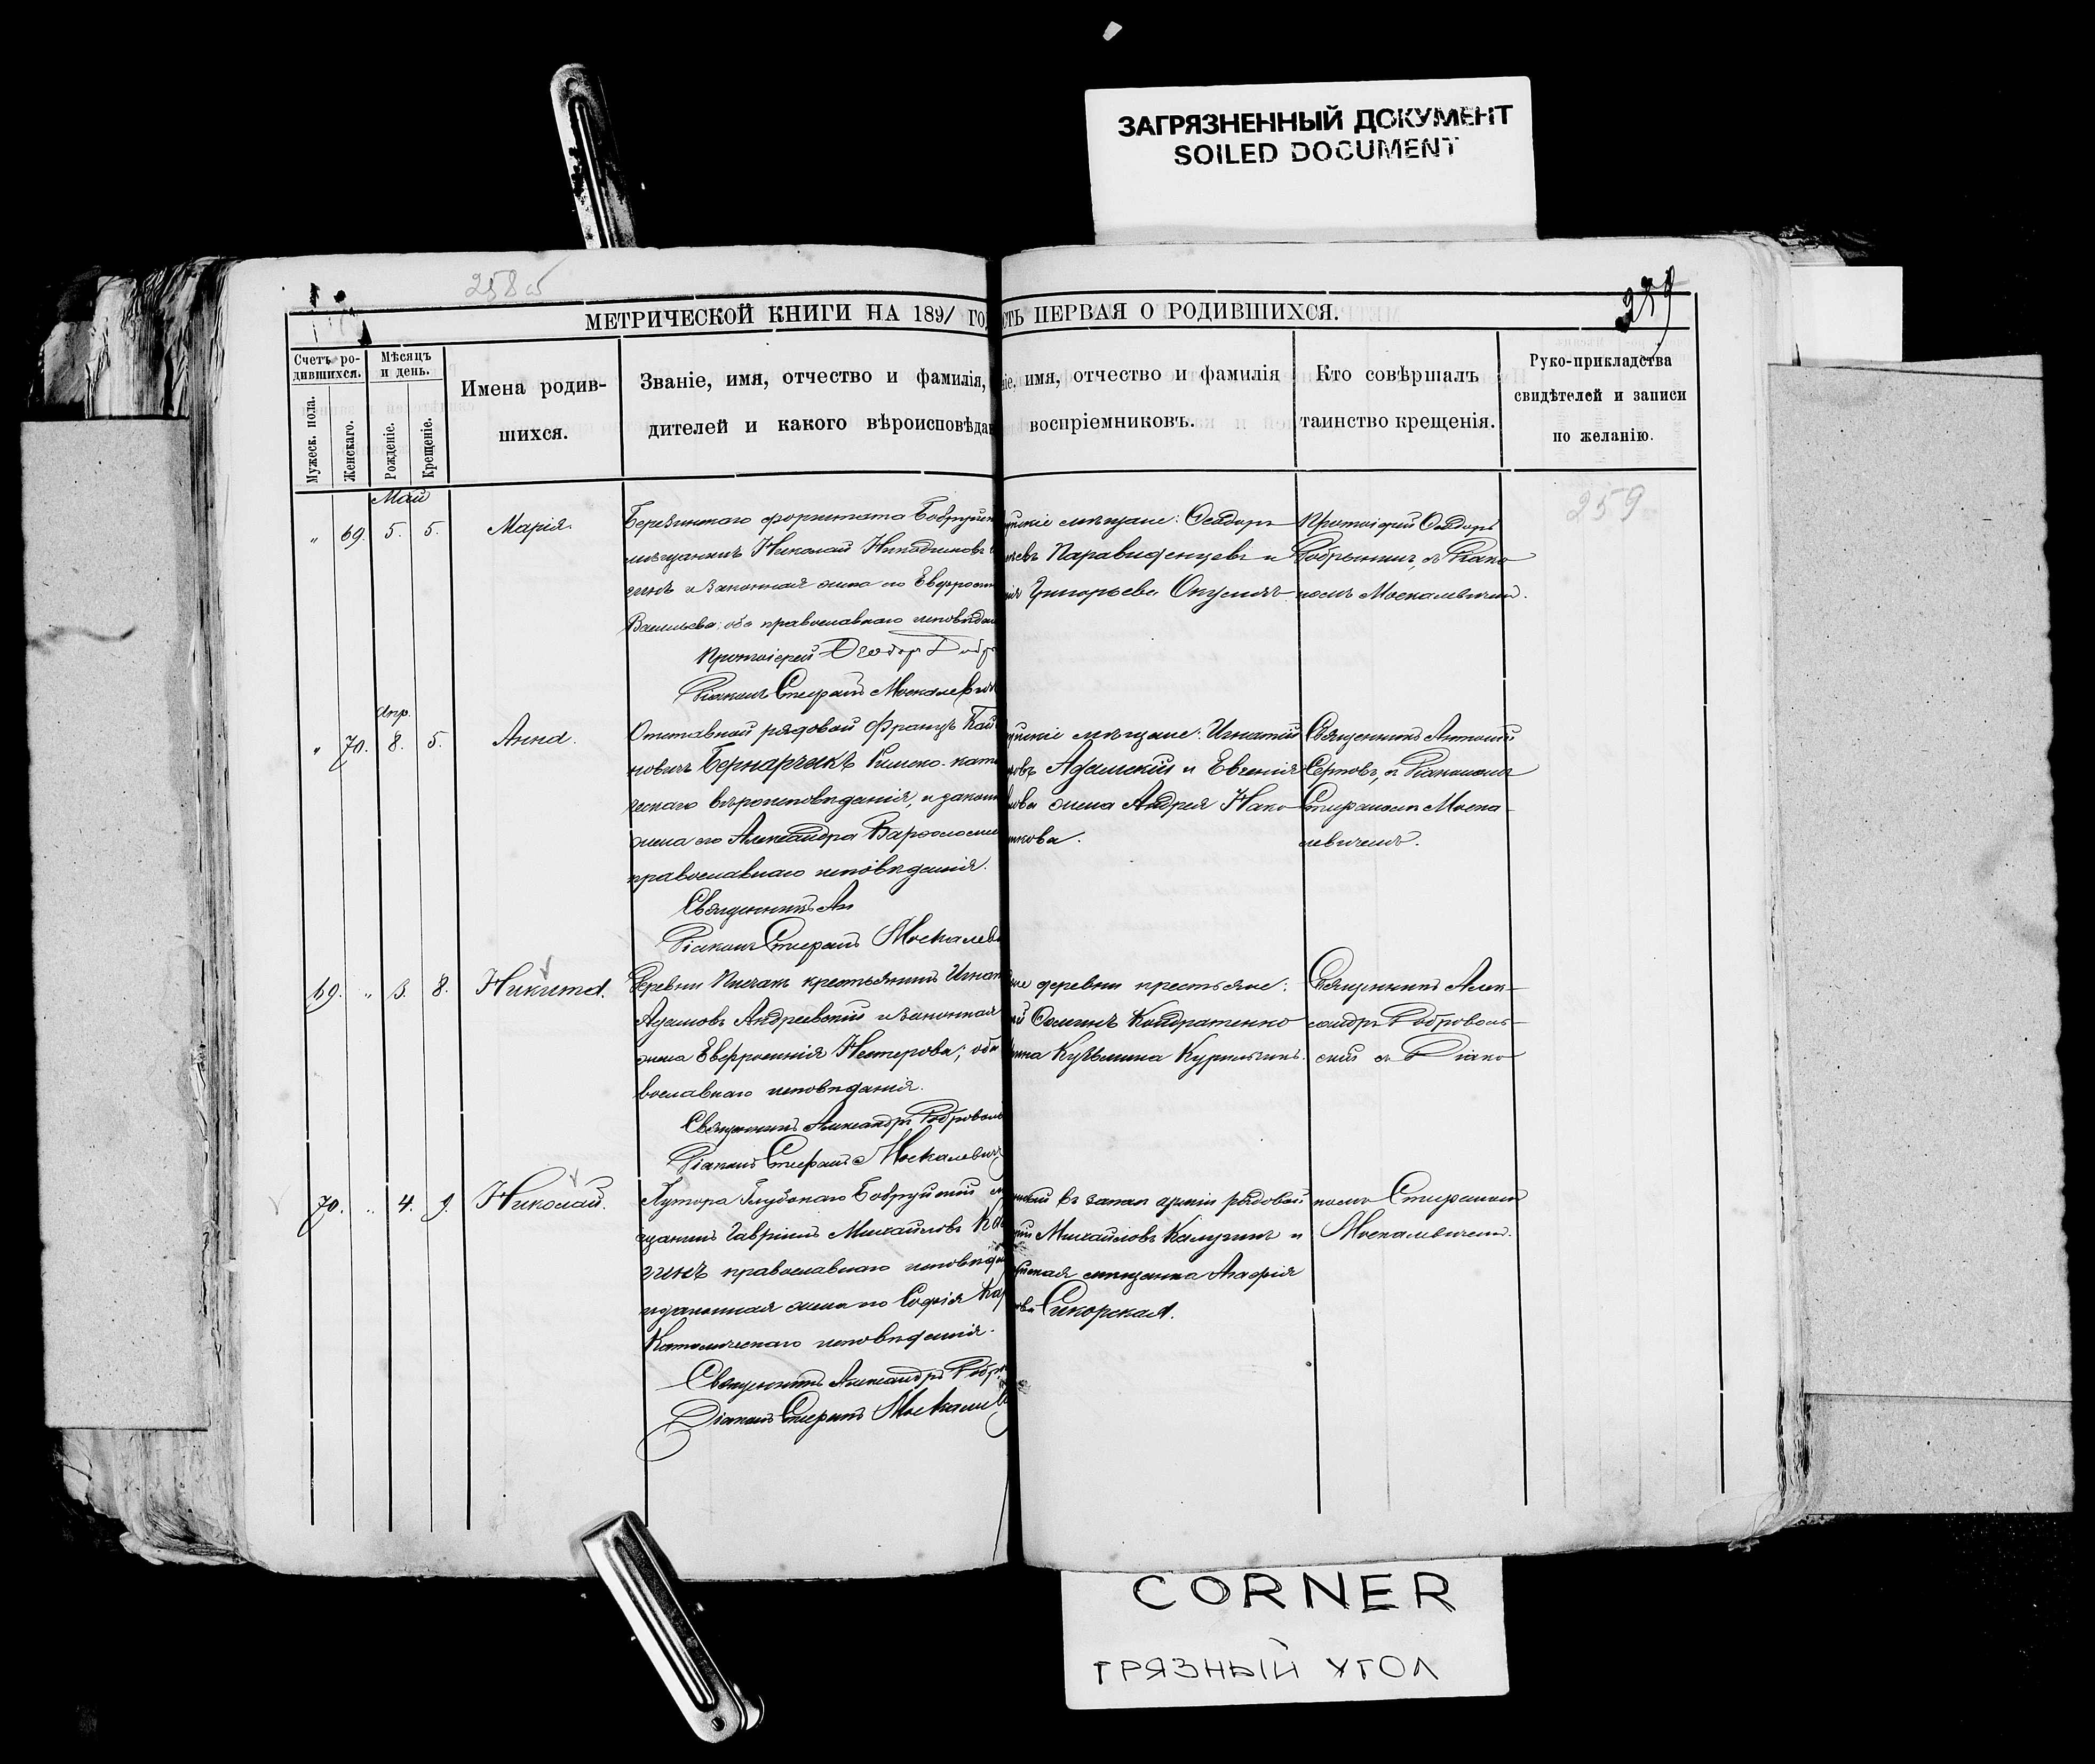 ЗАГРЯЗНЕННЫЙ ДОКУМЕНТ
SOILED DOCUMENT
258 об
259
МЕТРИЧЕСКОЙ КНИГИ НА 1891 ГО
СТЬ ПЕРВАЯ О РОДИВШИХСЯ.
Счетъ ро-
дившихся.
Мужеск. пола.
Женскаго.
Мѣсяцъ
и день.
Рожденіе.
Крещеніе.
Имена родив-
шихся.
Званіе, имя, отчество и фамилія,
дителей и какого вѣроисповѣдан
ніе, имя, отчество и фамилія
воспріемниковъ.
Кто совѣршалъ
таинство крещенія.
Руко-прикладства
свидѣтелей и записи
по желанію.
259
Май
" 69. 5. 5. Марія.
Березинскаго форштата Бобруйск
мѣщанинъ Николай
и законная жена его Евфросин
Васильева; оба православнаго исповѣдан
Протоіерей Ѳеодоръ Добр
Діаконъ Стефанъ Москалевич
уйскіе мѣщане: Ѳеодоръ
Григорьева
Протоіерей Ѳеодоръ
съ Діако
номъ Москалевичемъ.
Апр.
" 70. 8. 5. Анна.
Отставной рядовой Францъ
новичъ Бернарчакъ Римско-като
ческаго вѣроисповѣданія, и законн
жена его Александра Варѳоломе
православнаго исповѣданія.
Священникъ Ан
Діаконъ Стефанъ Москалев
уйскіе мѣщане: Игнатій
Адамскій и Евгенія
жена Андрея Нако
Священникъ Антоній
Сертовъ, съ Діакономъ
Стефаномъ Моска-
левичемъ.
69. " 3. 8. Никита.
Деревни крестьянинъ Игнат
Адамовъ Андреевскій и законная
жена Евфросинія Нестерова; оба
вославнаго исповѣданія.
Священникъ Александръ Доброволь
Діаконъ Стефанъ Москалевич
деревни крестьяне:
Кондратенко
Кузьмина
Священникъ Алек-
сандръ Доброволь-
скій съ Діако
70. " 4. 9. Николай.
Хутора Глубокаго Бобруйскій м
щанинъ Гавріилъ Михайловъ Ка
православнаго исповѣда
и законная жена его Софія Ка
Католическаго исповѣданія.
Священникъ Александръ Добр
Діаконъ Стефанъ Москалев
въ запасъ арміи рядовой
Михайловъ Калугинъ и
уйская мѣщанка Агафія
Сикорская.
номъ Стефаномъ
Москалевичемъ.
CORNER
ГРЯЗНЫЙ УГОЛ